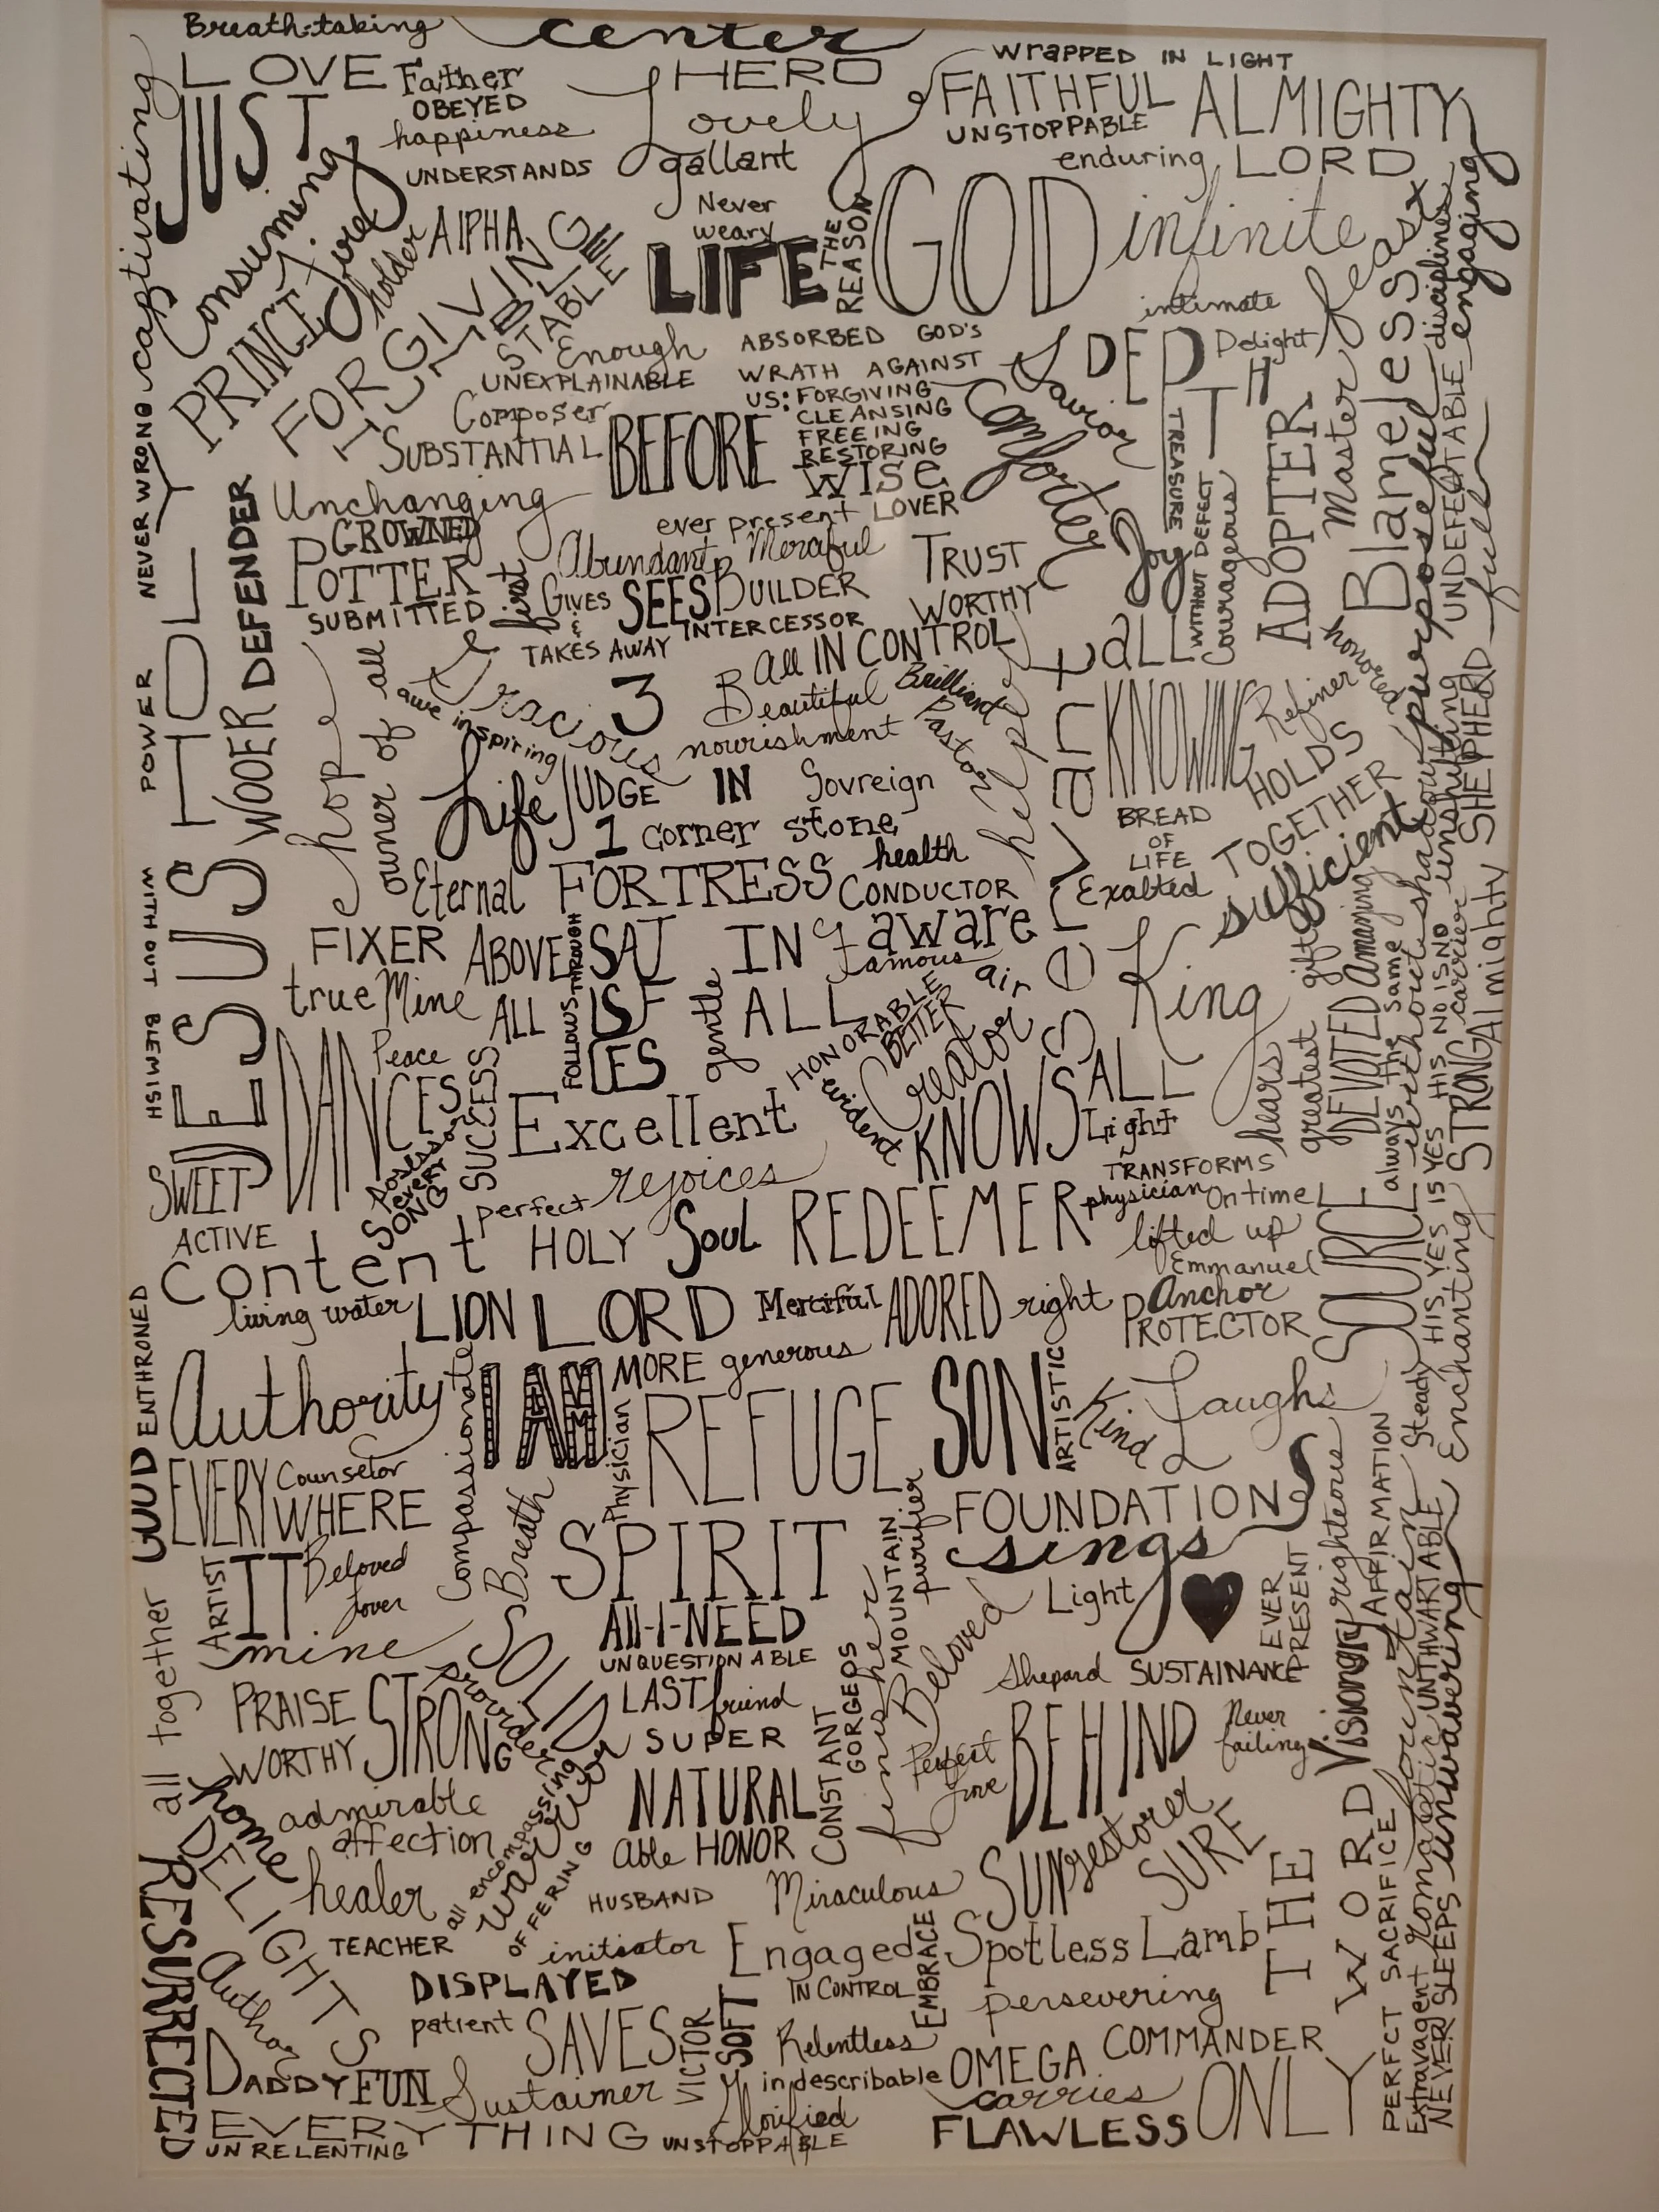 Breath-taking
center
LOVE
Father
HERO
wrapped IN LIGHT
JUST
OBEYED
Lovely
FAITHFUL
ALMIGHTY
happiness
UNSTOPPABLE
UNDERSTANDS
gallant
enduring
LORD
captivating
Consuming
fire
Never
weary
THE
REASON
GOD
infinite
feast
disciplines
engaging
PRINCE
holder
AlPHA
LIFE
FORGIVING
STABLE
intimate
Enough
ABSORBED GOD'S
DEPTH
Delight
UNEXPLAINABLE
WRATH AGAINST
US: FORGIVING
CLEANSING
FREEING
RESTORING
Savior
Composer
SUBSTANTIAL
BEFORE
wise
Comforter
TREASURE
ADOPTER
Master
Blameless
purposeful
UNDEFEATABLE
full
NEVER WRONG
HOLY
DEFENDER
Unchanging
LOVER
ever present
CROWNED
POTTER
Abundant
Merciful
TRUST
Joy
WITHOUT DEFECT
Courageous
SUBMITTED
first
GIVES
&
TAKES AWAY
SEES
BUILDER
WORTHY
INTERCESSOR
All IN CONTROL
tall
honored
POWER
WOOER
hope
owner of all
Gracious
awe inspiring
3
Beautiful
Brilliant
Pastor
helper
KNOWING
Refiner
nourishment
HOLDS
TOGETHER
unshifting
SHEPHERD
Life
JUDGE
IN
Sovreign
BREAD
OF
LIFE
1
corner stone
health
sufficient
WITH OUT BLEMISH
JESUS
Eternal
FORTRESS
CONDUCTOR
Exalted
without shadow
FIXER
ABOVE
FOLLOWS THROUGH
SATISFIES
IN
aware
famous
air
gift
amaming
true
Mine
ALL
gentle
ALL
HONORABLE
BETTER
Creator
King
DEVOTED
always the same
carrier
Almighty
DANCES
Peace
SUCCESS
Excellent
evident
KNOWS
ALL
Light
hears
greatest
HIS YES IS YES HIS NO IS NO
STRONG
SWEET
EVERY
SONG
perfect
rejoices
TRANSFORMS
physician
On time
ACTIVE
content
HOLY
Soul
REDEEMER
lifted up
Emmanuel
SOURCE
Enchanting
living water
LION
LORD
Merciful
ADORED
right
Anchor
PROTECTOR
ENTHRONED
Authority
Compassionate
I AM
MORE
generous
REFUGE
SON
ARTISTIC
Kind
Laughs
Steady
GOOD
EVERY
WHERE
Counselor
Physician
FOUNDATION
righteous
AFFIRMATION
ARTIST
IT
Beloved
lover
Breath
SPIRIT
MOUNTAIN
purifier
sings
Light
EVER
PRESENT
fountain
UNTHWARTABLE
unwavering
all together
mine
SOLID
All-I-NEED
UNQUESTIONABLE
finisher
Beloved
Shepard
SUSTAINANCE
Visionary
PRAISE
WORTHY
STRONG
Provider
LAST
friend
GORGEOS
BEHIND
Never
failing
SUPER
NATURAL
CONSTANT
Perfect
love
home
admirable
affection
all encompassing
warrior
OFFERING
able
HONOR
SUN
restorer
SURE
THE
WORD
romantic
DELIGHTS
healer
HUSBAND
Miraculous
RESURRECTED
Author
TEACHER
initiator
Engaged
EMBRACE
Spotless Lamb
DISPLAYED
IN CONTROL
persevering
PERFCT SACRIFICE
Extravagent
NEVER SLEEPS
patient
SAVES
VICTOR
SOFT
Relentless
COMMANDER
DADDY
FUN
Sustainer
indescribable
OMEGA
carries
ONLY
EVERYTHING
Glorified
FLAWLESS
UNRELENTING
UNSTOPPABLE